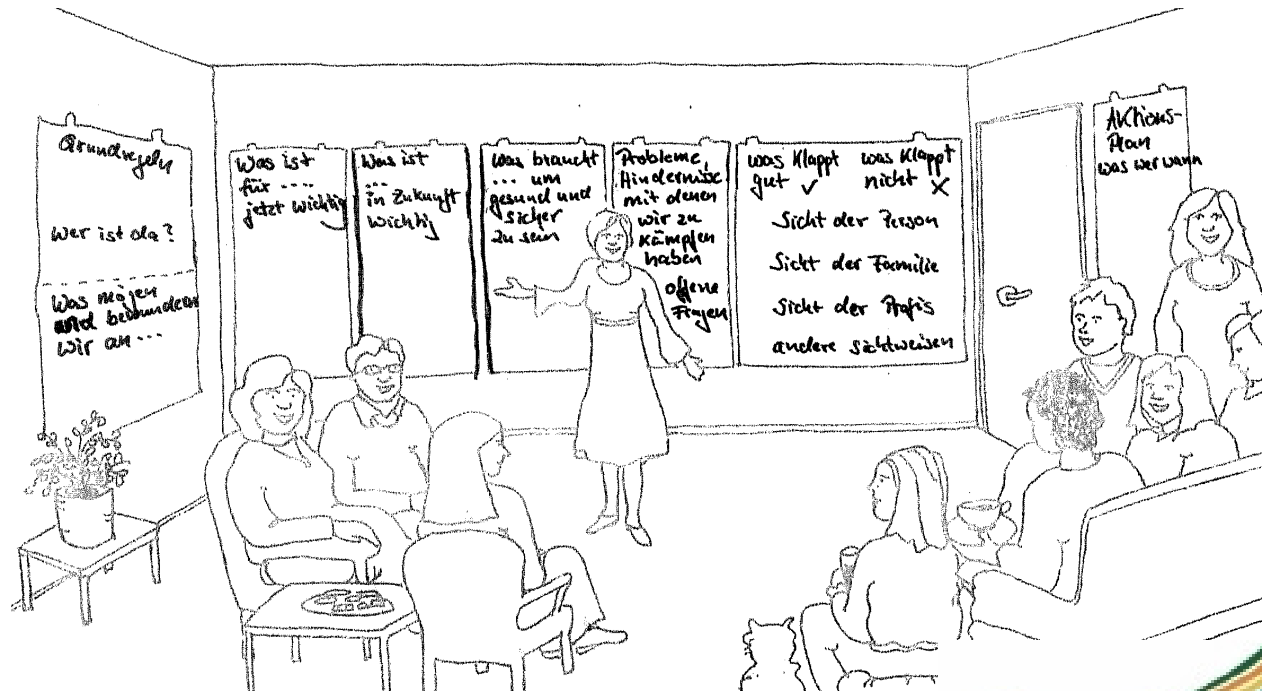 Grundregeln
Wer ist da?
Was mögen
und bewundern
wir an ...
Was ist
für ....
jetzt wichtig
Was ist
...
in Zukunft
wichtig
Was braucht
... um
gesund und
sicher
zu sein
Probleme,
Hindernisse
mit denen
wir zu
kämpfen
haben
offene
Fragen
was klappt
gut ✓
was klappt
nicht ✗
Sicht der Person
Sicht der Familie
Sicht der Profis
andere Sichtweisen
Aktions-
Plan
was wer wann